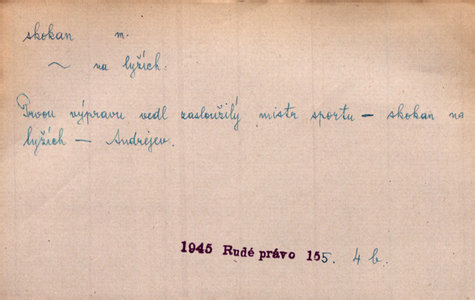 skokan m.
~ na lyžích.
Prvou výpravu vedl zasloužilý mistr sportu – skokan na
lyžích – Andrejev.
1945 Rudé právo 155. 4 b.